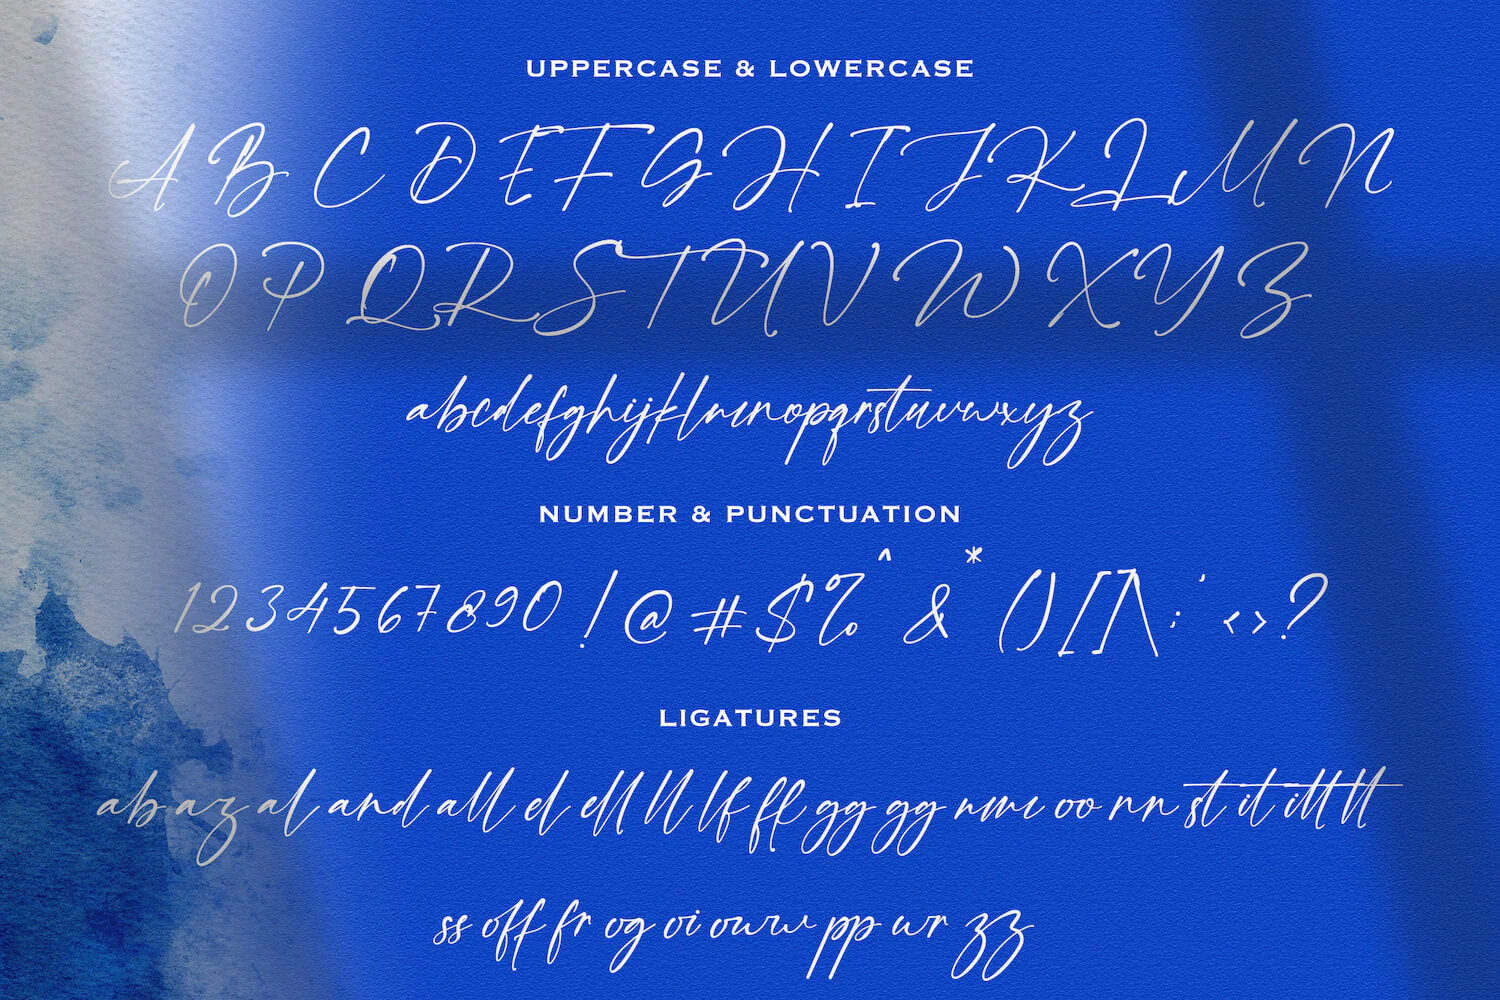 UPPERCASE & LOWERCASE
A B C D E F G H I J K L M N
O P Q R S T U V W X Y Z
abcdefghijklmnopqrstuvwxyz
NUMBER & PUNCTUATION
1234567890 ! @ # $ % ^ & * () [] \ : ' <> ?
LIGATURES
ab az al and all el ell ll lf ff gg gg mm oo nn st it itt tt
ss off fr og oi ow pp wr zz